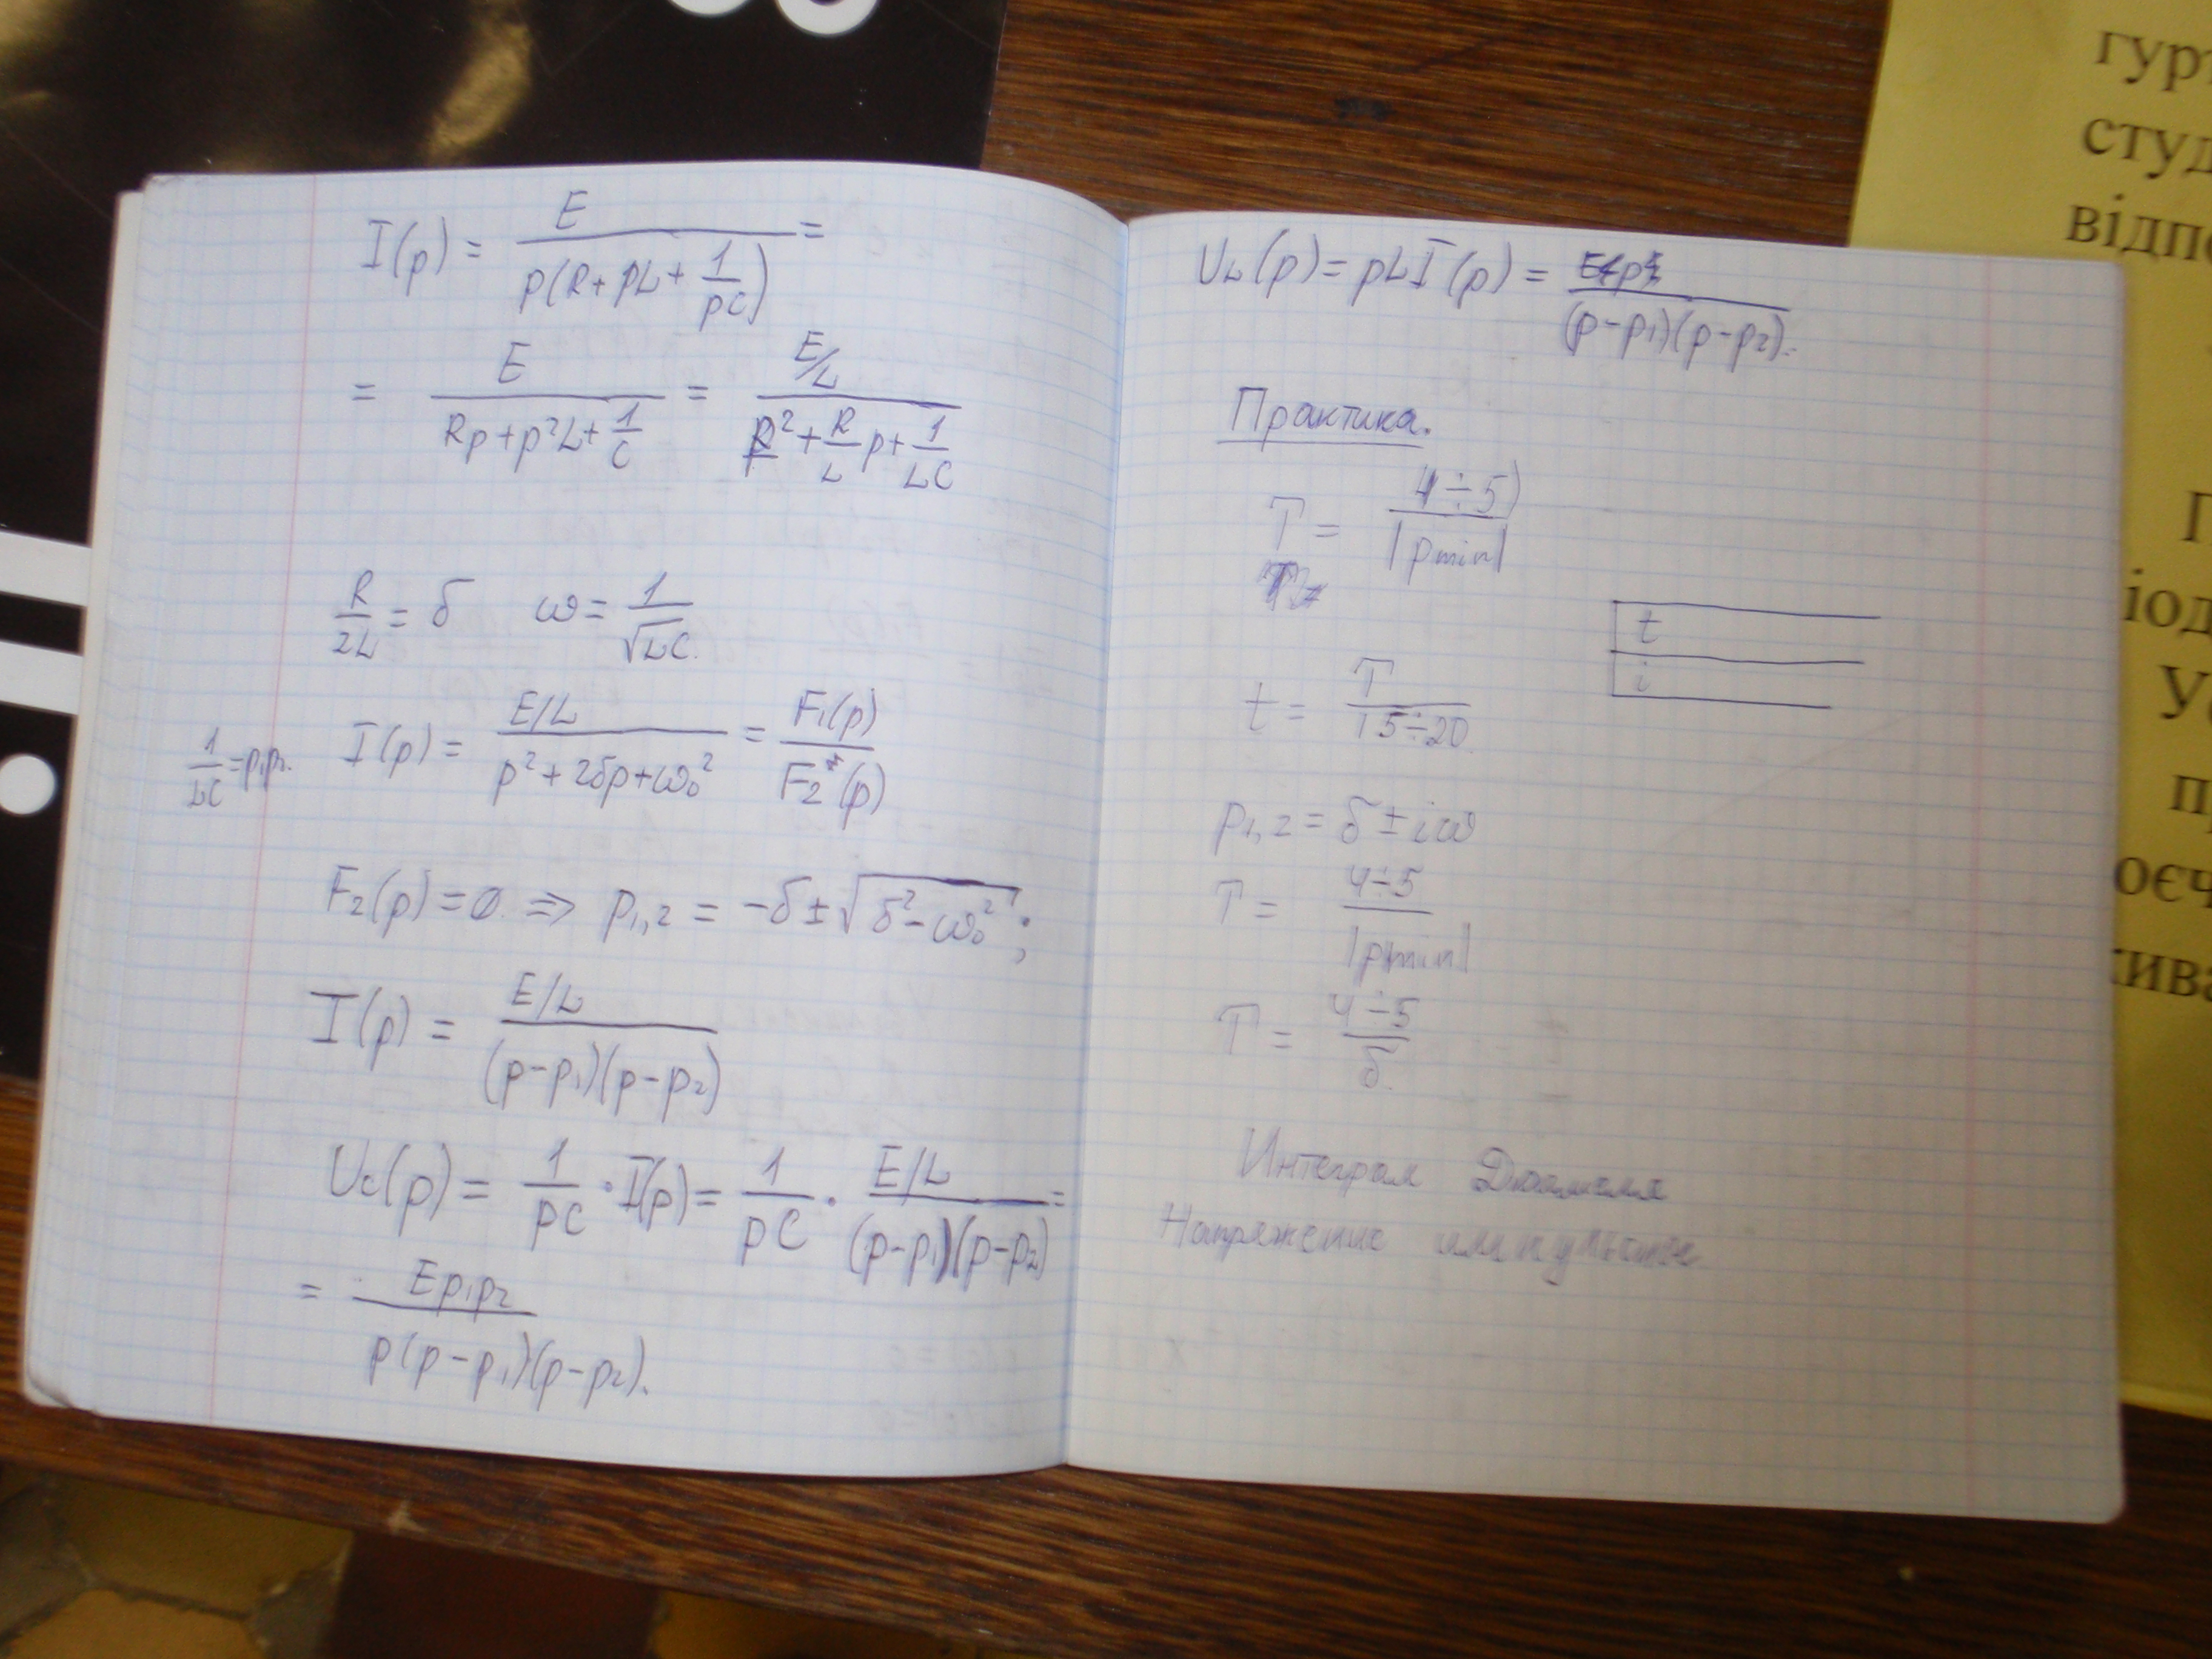 I(p) = E / p(R+pL+1/pC) =
= E / Rp+p²L+1/C = E/L / p²+R/L p+1/LC
R/2L = δ ω = 1/√LC.
1/LC = p₁p₂. I(p) = E/L / p²+2δp+ω₀² = F₁(p) / F₂(p)
F₂(p)=0. ⇒ p₁,₂ = -δ±√δ²-ω₀²;
I(p) = E/L / (p-p₁)(p-p₂)
Uc(p) = 1/pC · I(p) = 1/pC · E/L / (p-p₁)(p-p₂) =
= Ep₁p₂ / p(p-p₁)(p-p₂).
U_L(p) = pLI(p) = / (p-p₁)(p-p₂).
Практика.
T = 4÷5) / |pmin|
t
i
t = T / 15÷20
p₁,₂ = δ ± iω
T = 4÷5 / |pmin|
T = 4÷5 / δ.
Интеграл Дюамеля
Напряжение
гур
студ
відпо
П
іод
У
п
оєч
ива